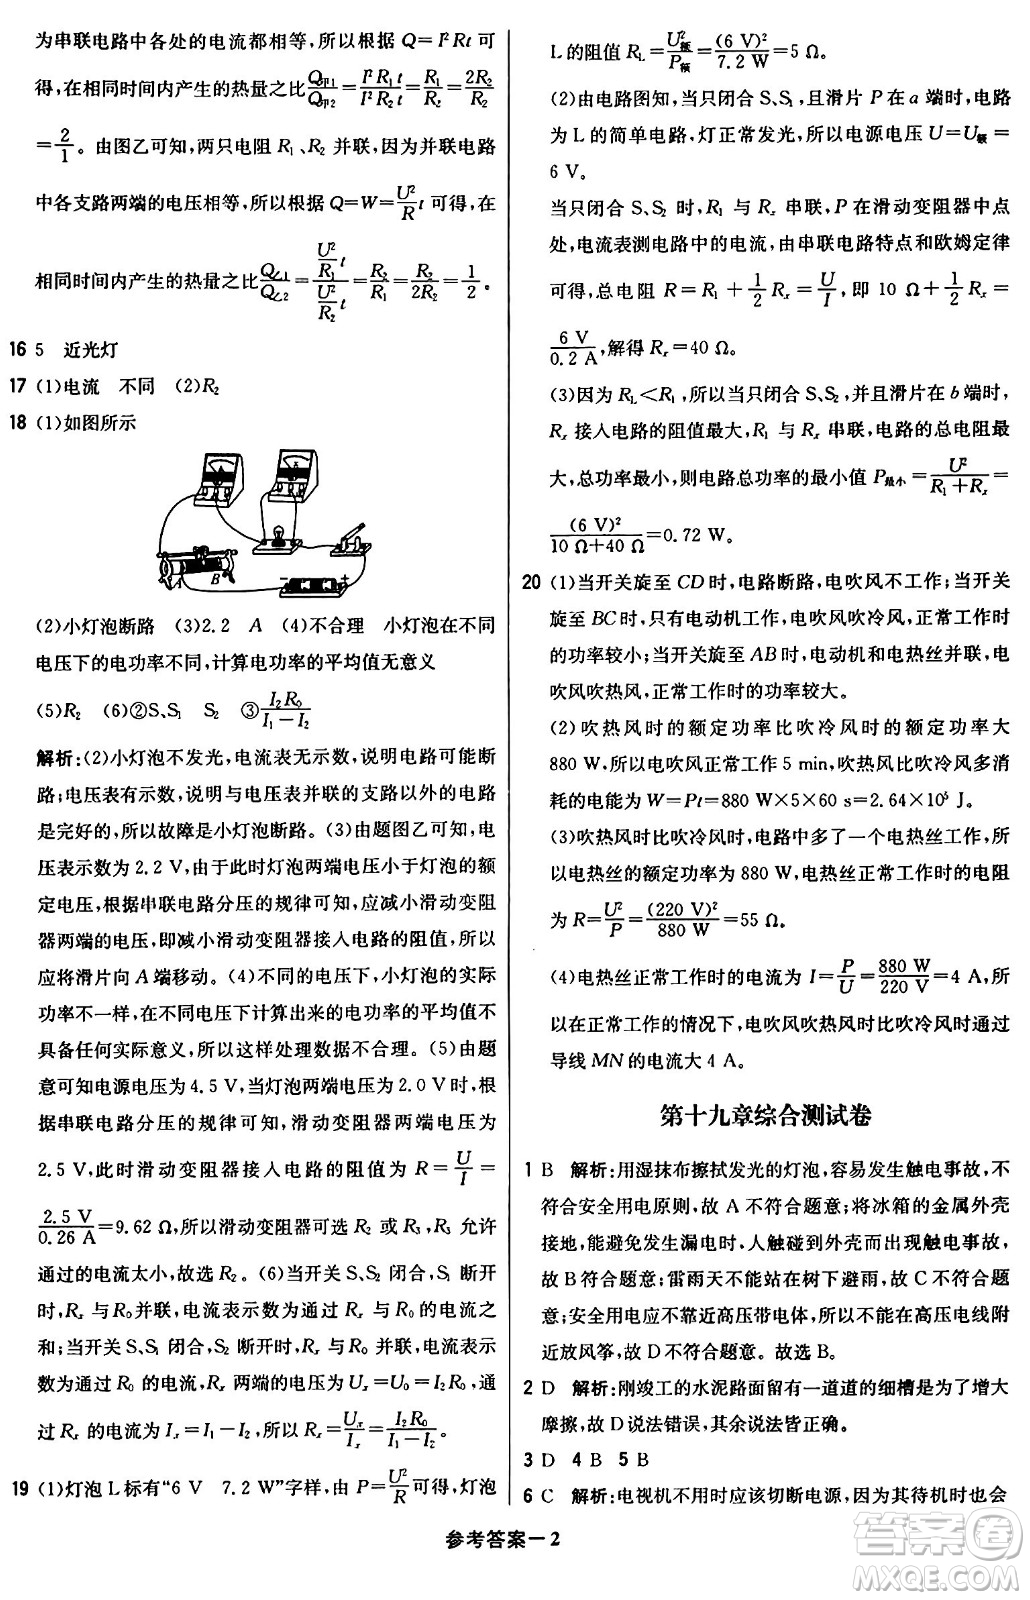 为串联电路中各处的电流都相等,所以根据 Q=I²Rt 可
得,在相同时间内产生的热量之比Q甲1/Q甲2=I²R₁t/I²R₂t=R₁/R₂=2R₂/R₂
=2/1。由图乙可知,两只电阻 R₁、R₂ 并联,根据并联电路
中各支路两端的电压相等,所以根据 Q=W=U²/R t 可得,在
相同时间内产生的热量之比Q乙1/Q乙2=(U²/R₁ t)/(U²/R₂ t)=R₂/R₁=R₂/2R₂=1/2。
16 5 近光灯
17 (1)电流 不同 (2)R₂
18 (1)如图所示
A B
(2)小灯泡断路 (3)2.2 A (4)不合理 小灯泡在不同
电压下的电功率不同,计算电功率的平均值无意义
(5)R₂ (6)②S、S₁ S₂ ③I₂R₀/(I₁-I₂)
解析:(2)小灯泡不发光,电流表无示数,说明电路可能断
路;电压表有示数,说明与电压表并联的支路以外的电路
是完好的,所以故障是小灯泡断路。(3)由题图乙可知,电
压表示数为 2.2 V,由于此时灯泡两端电压小于灯泡的额
定电压,根据串联电路分压的规律可知,应减小滑动变阻
器两端的电压,即减小滑动变阻器接入电路的阻值,所以
应将滑片向 A 端移动。(4)不同的电压下,小灯泡的实际
功率不一样,在不同电压下计算出来的电功率的平均值不
具备任何实际意义,所以这样处理数据不合理。(5)由题
意可知电源电压为 4.5 V,当灯泡两端电压为 2.0 V时,根
据串联电路分压的规律可知,滑动变阻器两端电压为
2.5 V,此时滑动变阻器接入电路的阻值为 R=U/I=
2.5 V/0.26 A=9.62 Ω,所以滑动变阻器可选 R₂ 或 R₃,R₃ 允许
通过的电流太小,故选 R₂。(6)当开关 S、S₂ 闭合,S₁ 断开
时,Rₓ 与 R₀并联,电流表示数为通过 Rₓ 与 R₀ 的电流之
和;当开关 S、S₁ 闭合,S₂ 断开时,Rₓ 与 R₀ 并联,电流表示
数为通过 R₀ 的电流,Rₓ 两端的电压为 Uₓ=U₀=I₂R₀,通
过 Rₓ 的电流为 Iₓ=I₁-I₂,所以 Rₓ=Uₓ/Iₓ=I₂R₀/(I₁-I₂)。
19 (1)灯泡 L 标有“6 V 7.2 W”字样,由 P=U²/R可得,灯泡
L 的阻值 R_L=U额²/P额=(6 V)²/7.2 W=5 Ω。
(2)由电路图知,当只闭合 S、S₁,且滑片 P 在 a 端时,电路
为 L 的简单电路,灯正常发光,所以电源电压 U=U额=
6 V。
当只闭合 S、S₂ 时,R₁ 与 Rₓ 串联,P 在滑动变阻器中点
处,电流表测电路中的电流,由串联电路特点和欧姆定律
可得,总电阻 R=R₁+1/2Rₓ=U/I,即 10 Ω+1/2Rₓ=
6 V/0.2 A,解得 Rₓ=40 Ω。
(3)因为 R_L<R₁,所以当只闭合 S、S₂,且滑片在 b 端时,
Rₓ 接入电路的阻值最大,R₁ 与 Rₓ 串联,电路的总电阻最
大,总功率最小,则电路总功率的最小值 P最小=U²/(R₁+Rₓ)=
(6 V)²/(10 Ω+40 Ω)=0.72 W。
20 (1)当开关旋至 CD时,电路断路,电吹风不工作;当开关
旋至 BC时,只有电动机工作,电吹风吹冷风,正常工作时
的功率较小;当开关旋至 AB 时,电动机和电热丝并联,电
吹风吹热风,正常工作时的功率较大。
(2)吹热风时的额定功率比吹冷风时的额定功率大
880 W,所以电吹风正常工作 5 min,吹热风比吹冷风多消
耗的电能为 W=Pt=880 W×5×60 s=2.64×10⁵ J。
(3)吹热风时比吹冷风时,电路中多了一个电热丝工作,所
以电热丝的额定功率为 880 W,电热丝正常工作时的电阻
为 R=U²/P=(220 V)²/880 W=55 Ω。
(4)电热丝正常工作时的电流为 I=P/U=880 W/220 V=4 A,所
以在正常工作的情况下,电吹风吹热风时比吹冷风时通过
导线 MN的电流大 4 A。
第十九章综合测试卷
1 B 解析:用湿抹布擦拭发光的灯泡,容易发生触电事故,不
符合安全用电原则,故 A 不符合题意;将冰箱的金属外壳
接地,能避免发生漏电时,人触碰到外壳而出现触电事故,
故 B 符合题意;雷雨天不能站在树下避雨,故 C 不符合题
意;安全用电应不靠近高压带电体,所以不能在高压电线附
近放风筝,故 D 不符合题意。故选 B。
2 D 解析:刚竣工的水泥路面留有一道道的细槽是为了增大
摩擦,故 D 说法错误,其余说法皆正确。
3 D 4 B 5 B
6 C 解析:电视机不用时应该切断电源,因为其待机时也会
参考答案—2
答案圈
MXQE.COM